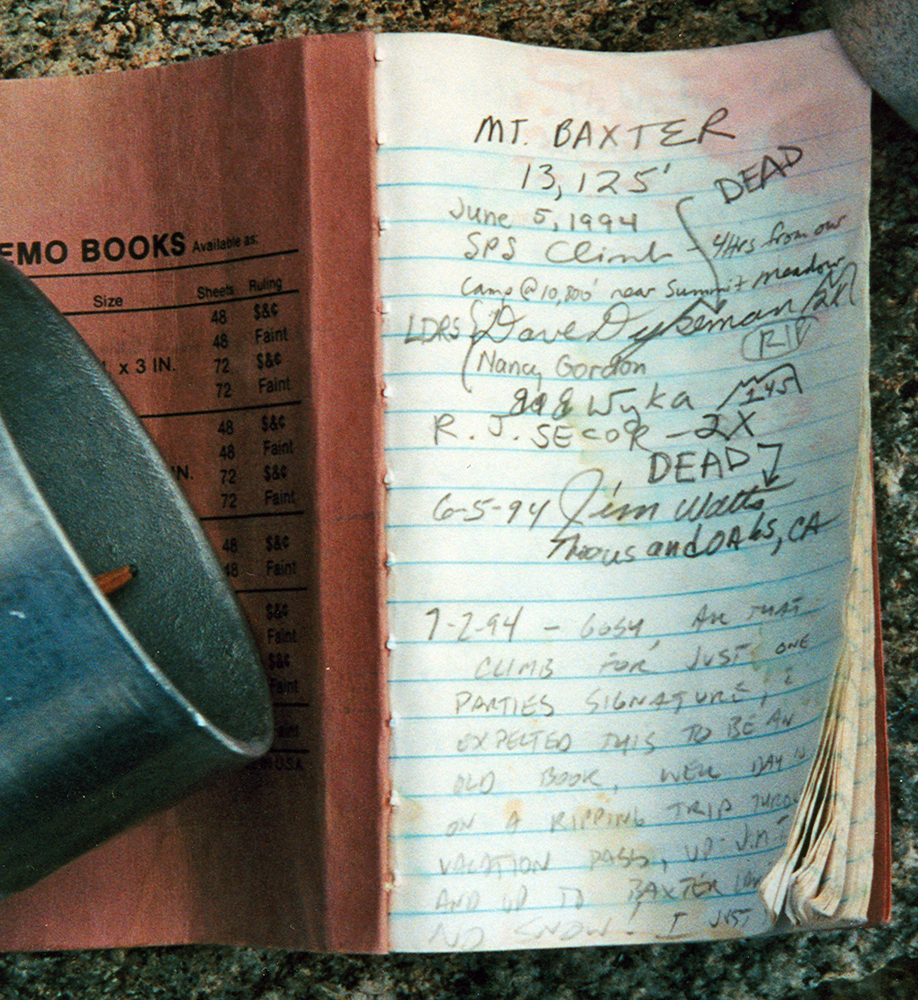 EMO BOOKS Available as:
Size Sheets Ruling
48 $&¢
48 Faint
x 3 IN. 72 $&¢
72 Faint
48 $&¢
48 Faint
IN. 72 $&¢
72 Faint
48 $&¢
48 Faint
$&¢
Faint
$&¢
Faint
USA
MT. BAXTER
13,125'
DEAD
June 5, 1994
SPS Climb - 4Hrs from our
Camp @ 10,800' near Summit Meadow
LDRS Dave Dykeman 2X
RIP
Nancy Gordon
Wyka
R. J. SECOR - 2X
DEAD
6-5-94 Jim Watts
Thousand Oaks, CA
7-2-94 - GOSH, ALL THAT
CLIMB FOR JUST ONE
PARTIES SIGNATURE, I
EXPECTED THIS TO BE AN
OLD BOOK, WELL DAY
ON A RIPPING TRIP
VACATION PASS, UP
AND UP TO BAXTER
NO SNOW! I JUST